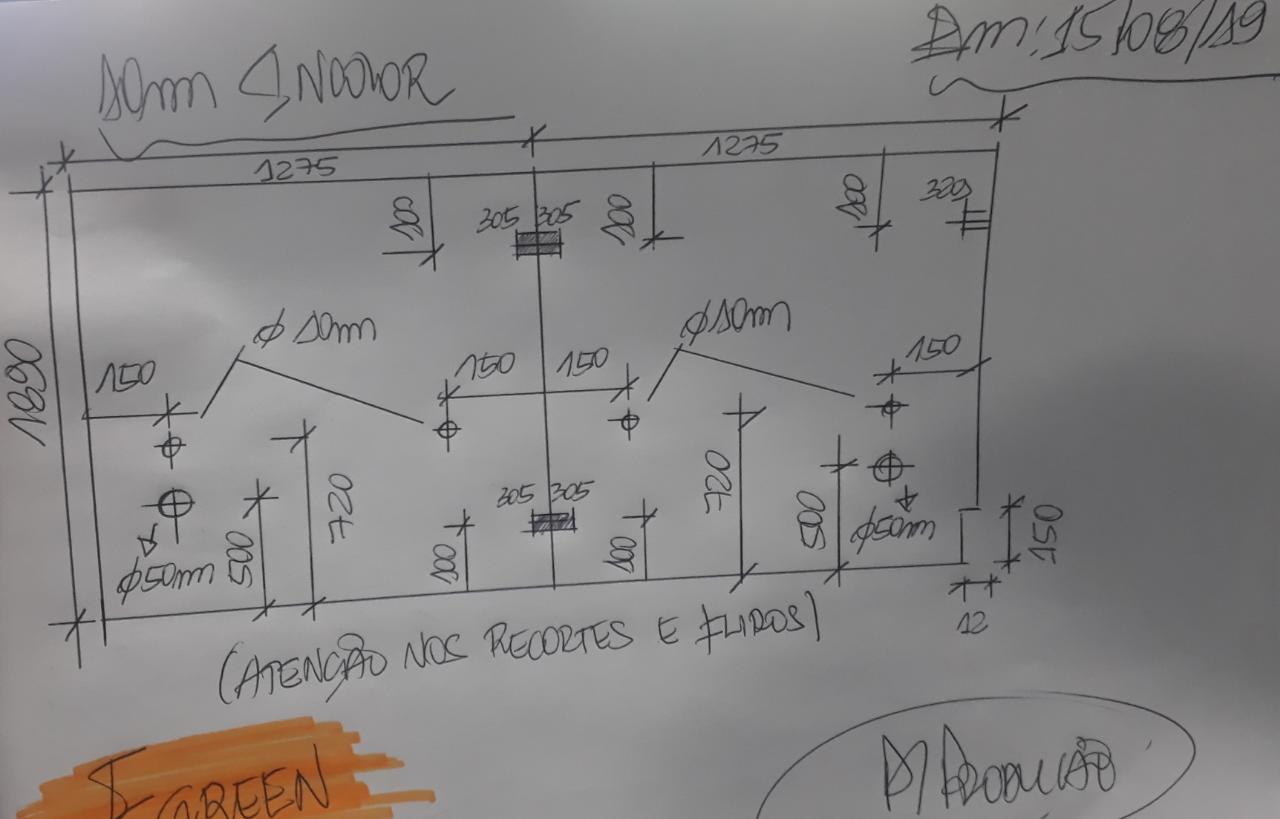 10mm INCOLOR
Em: 15/08/19
1275
1275
100
305
305
100
100
320
1890
Ø 10mm
Ø10mm
150
150
150
150
720
305
305
720
500
100
100
500
Ø50mm
Ø50mm
150
12
(ATENÇÃO NOS RECORTES E FUROS)
GREEN
P/ PRODUÇÃO